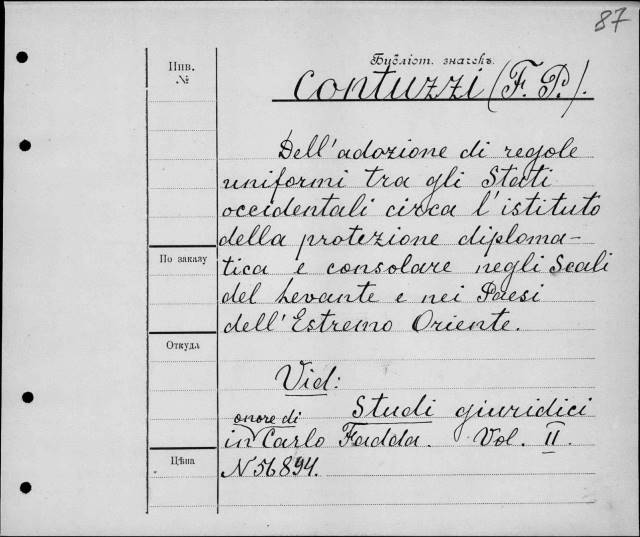 87
Бубліот. значекъ.
Инв.
№
Contuzzi (F. P.).
Dell'adozione di regole
uniformi tra gli Stati
occidentali circa l'istituto
della protezione diploma-
tica e consolare negli Scali
del Levante e nei Paesi
dell'Estremo Oriente.
По заказу
Откуда
Vid:
Studi giuridici
onore di
in Carlo Fadda. Vol. II.
Цѣна
N 56894.